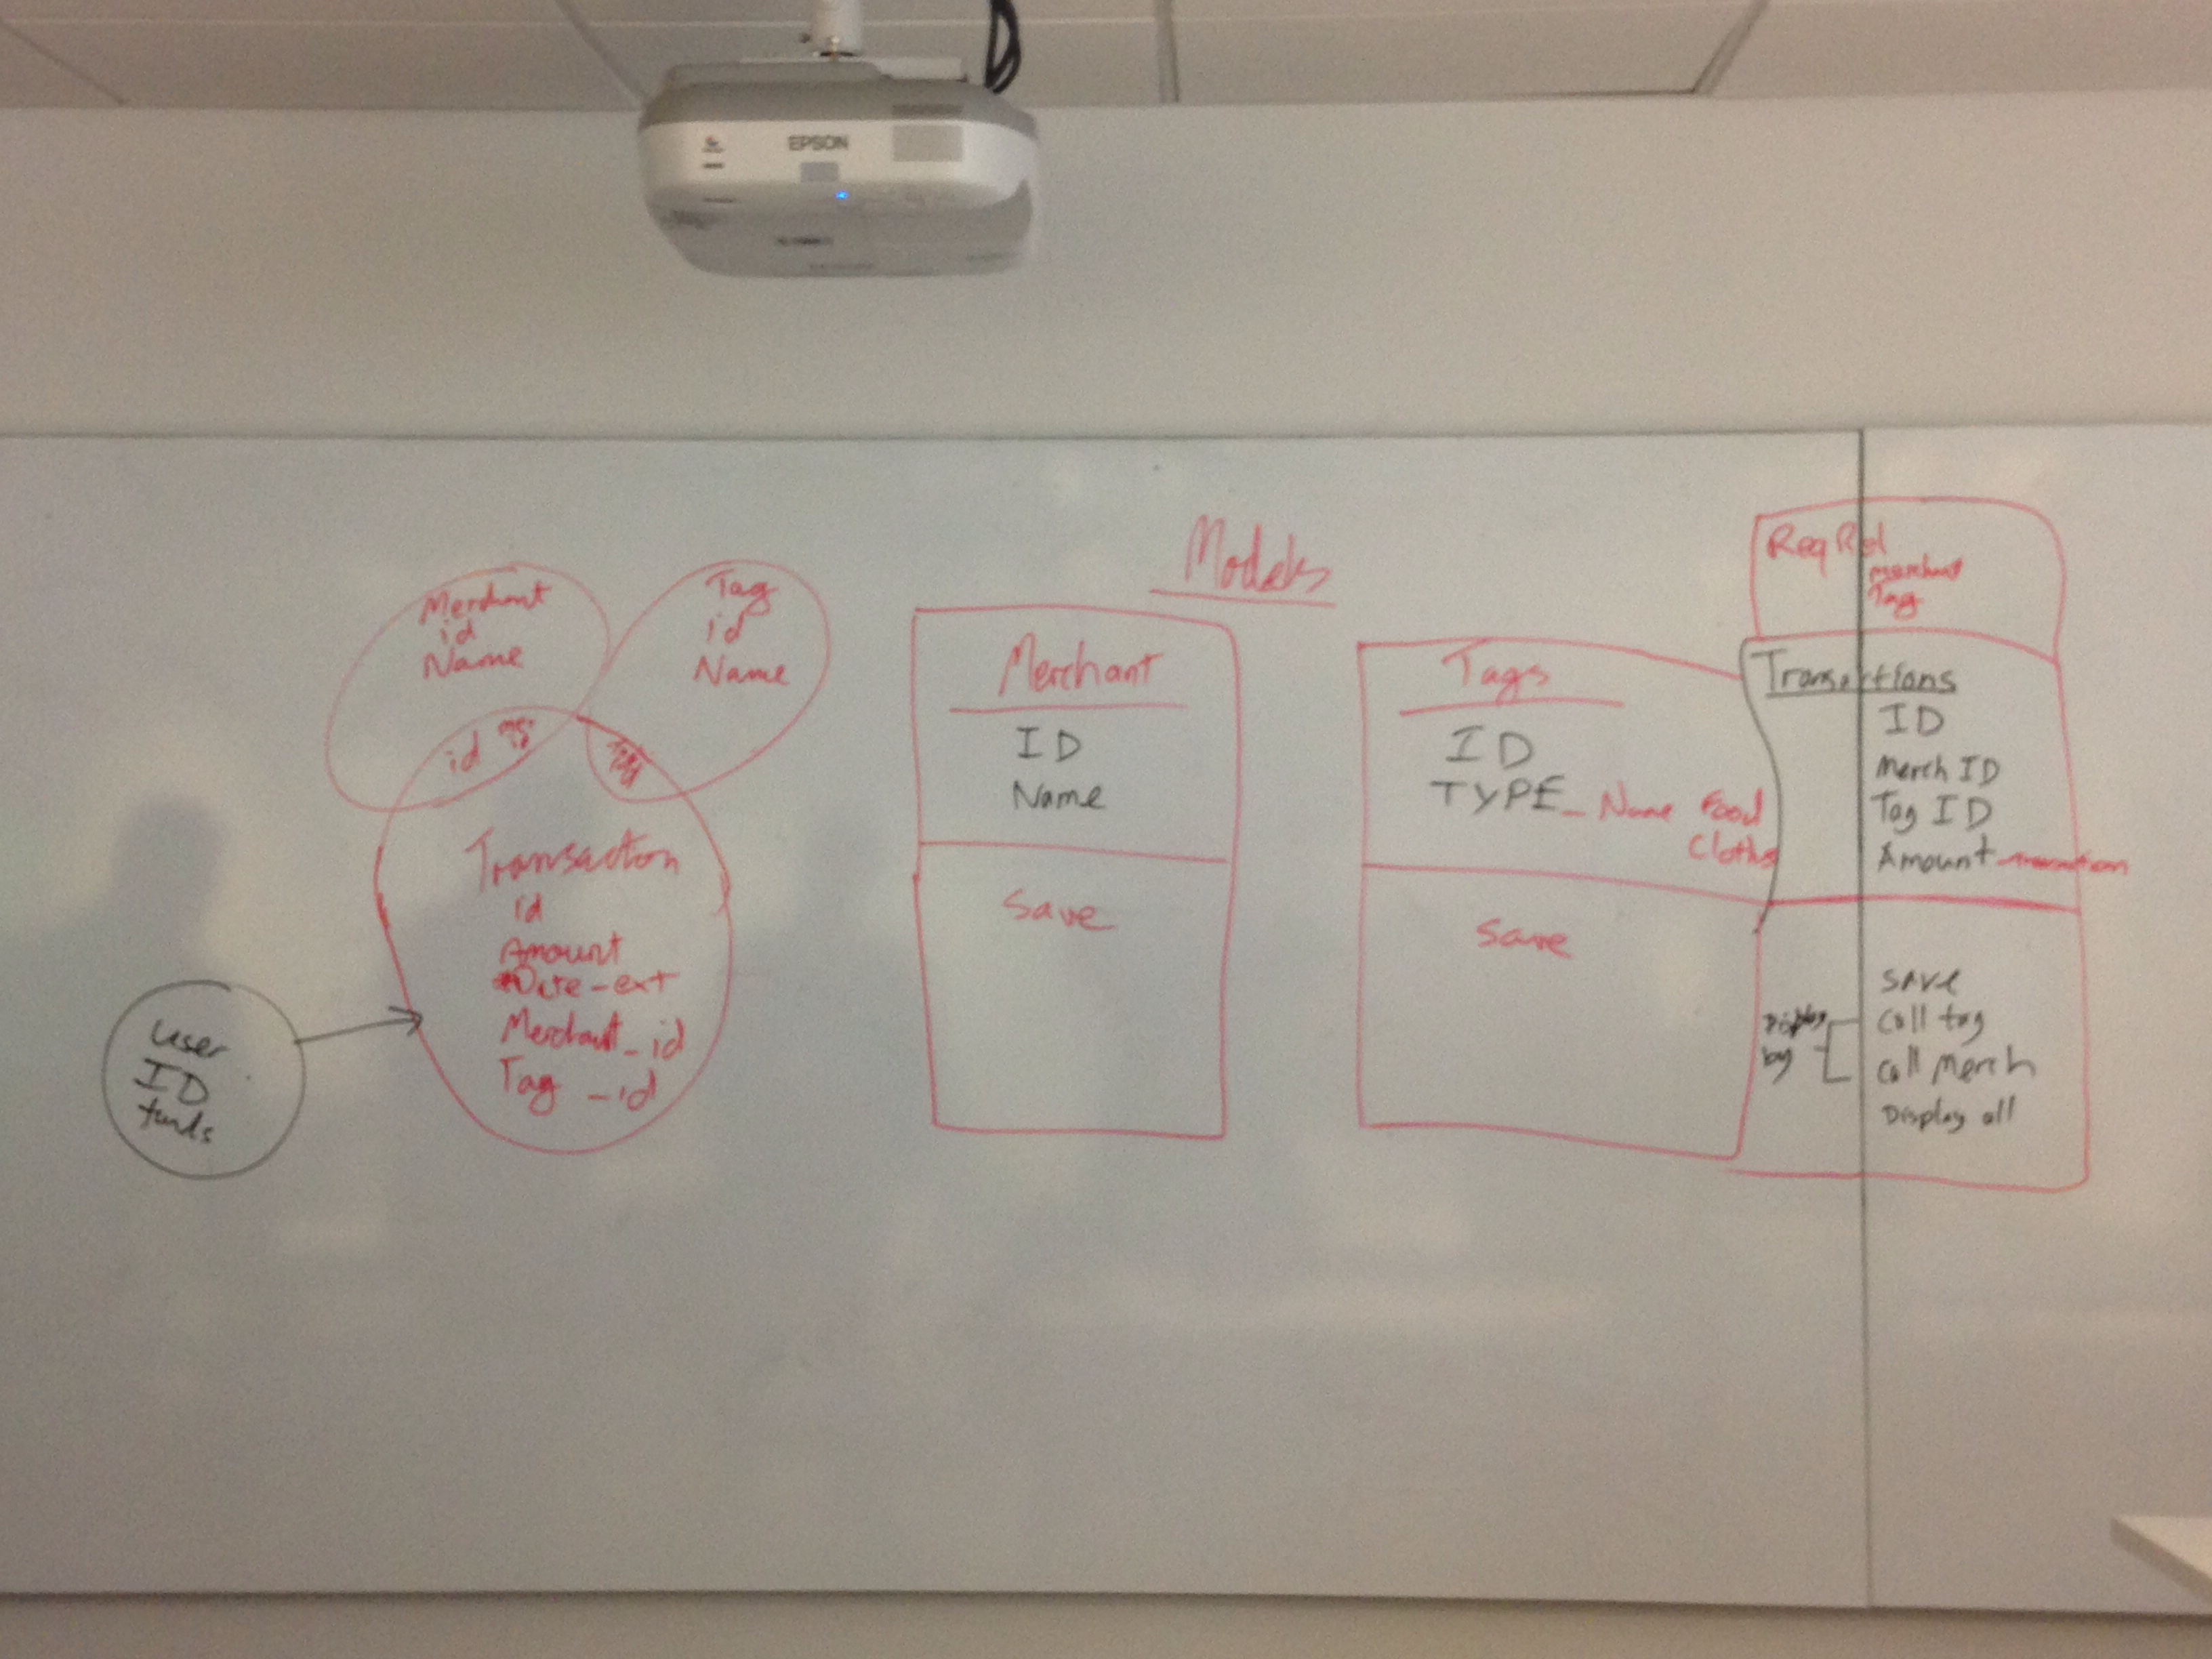 EPSON
Merchant
id
Name
Tag
id
Name
id
Transaction
id
Amount
Date-ext
Merchant_id
Tag_id
user
ID
funds
Models
Merchant
ID
Name
Save
Tags
ID
TYPE_Name Food
Cloths
Save
Req Rel
merchant
Tag
Transactions
ID
Merch ID
Tag ID
Amount
Display
by
SAVE
Call tag
Call Merch
Display all